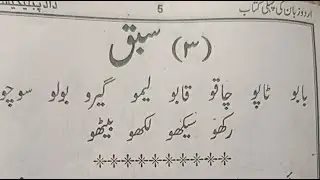 اردو زبان کی پہلی کتاب
5
سبق (۳)
بابو ٹاپو چاقو قابو لیمو گیرو بولو سوچو
رکھو سیکھو لکھو بیٹھو